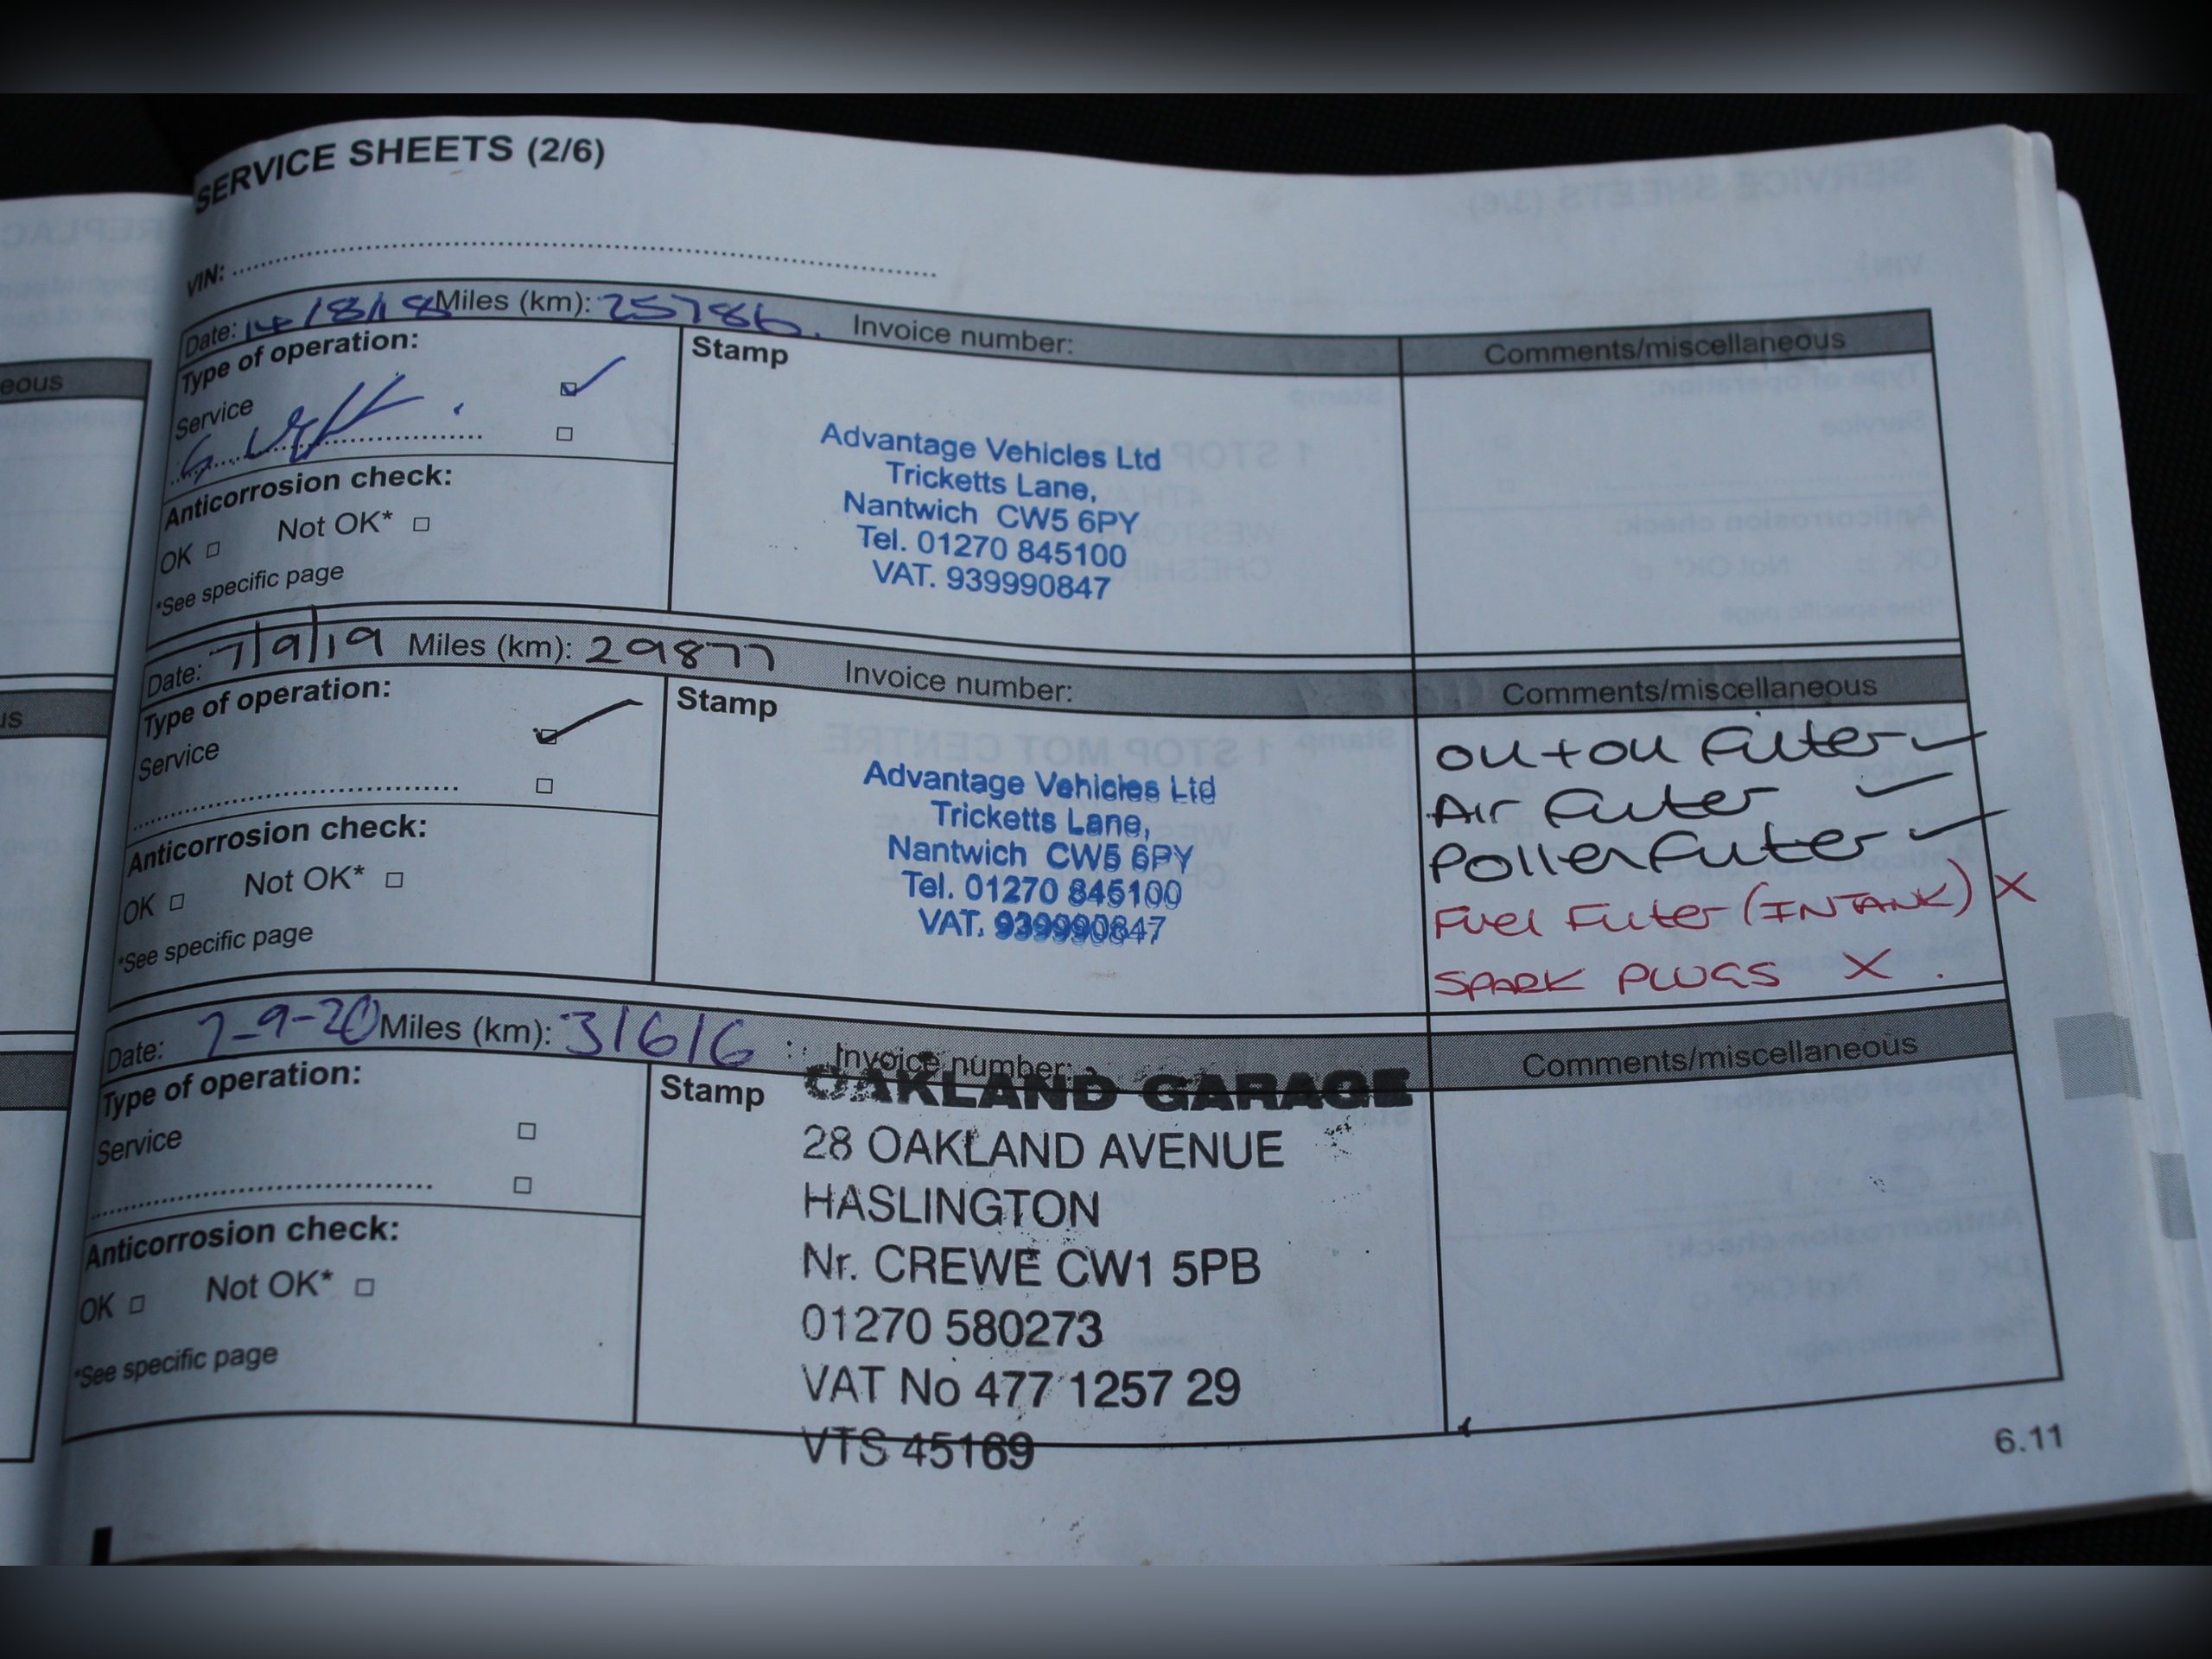 SERVICE SHEETS (2/6)
VIN:
Date: 14/8/18 Miles (km): 25786. Invoice number: Comments/miscellaneous
Type of operation:
Service
Stamp
Advantage Vehicles Ltd
Tricketts Lane,
Nantwich CW5 6PY
Tel. 01270 845100
VAT. 939990847
Anticorrosion check:
OK Not OK*
*See specific page
Date: 7/9/19 Miles (km): 29877 Invoice number: Comments/miscellaneous
Type of operation:
Service
Stamp
Advantage Vehicles Ltd
Tricketts Lane,
Nantwich CW5 6PY
Tel. 01270 845100
VAT. 939990847
Oil + oil Filter ✓
Air Filter ✓
Pollen Filter ✓
Fuel Filter (IN TANK) X
SPARK PLUGS X.
Anticorrosion check:
OK Not OK*
*See specific page
Date: 7-9-20 Miles (km): 31616 Invoice number: Comments/miscellaneous
Type of operation:
Service
Stamp
OAKLAND GARAGE
28 OAKLAND AVENUE
HASLINGTON
Nr. CREWE CW1 5PB
01270 580273
VAT No 477 1257 29
VTS 45169
Anticorrosion check:
OK Not OK*
*See specific page
6.11